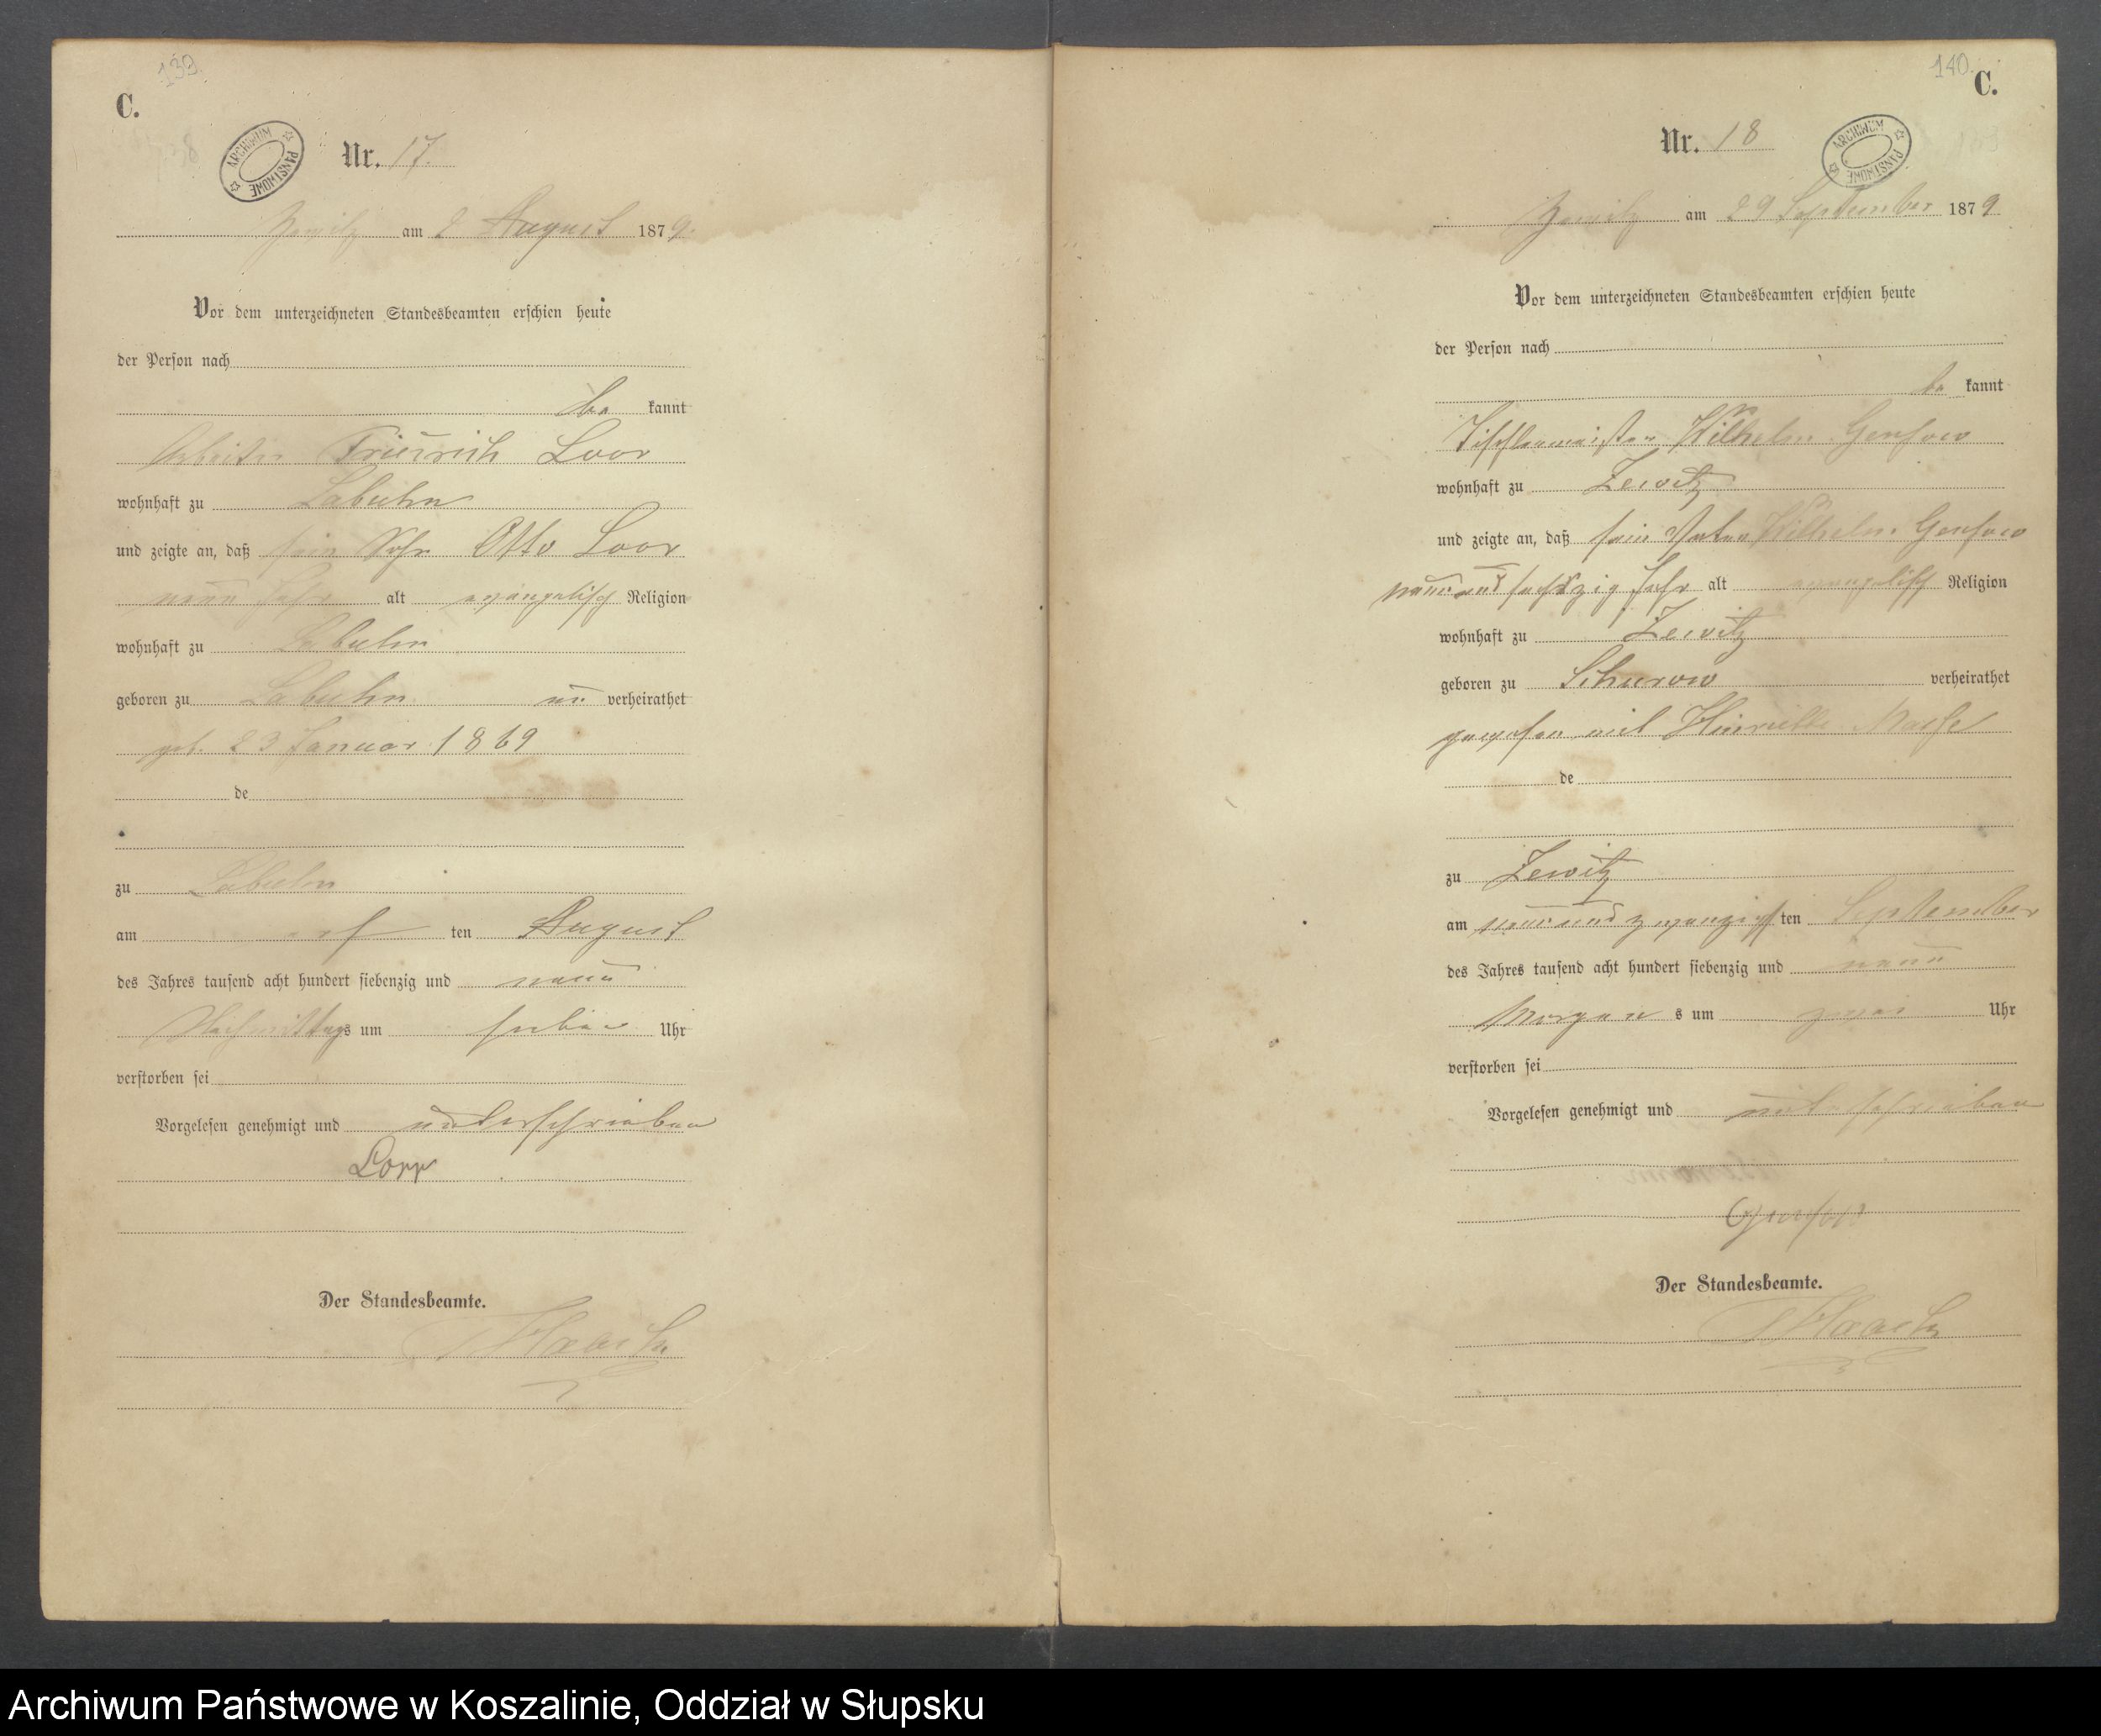 139.
C.
ARCHIWUM PAŃSTWOWE
Nr. 17.
Zewitz am 2 August 1879.
Vor dem unterzeichneten Standesbeamten erschien heute
der Person nach
be kannt
Arbeiter Friedrich Loor
wohnhaft zu Labuhn
und zeigte an, daß sein Sohn Otto Loor
alt evangelisch Religion
wohnhaft zu Labuhn
geboren zu Labuhn un verheirathet
geb. 23 Januar 1869
de
zu Labuhn
am ten August
des Jahres tausend acht hundert siebenzig und neun
Nachmittags um sieben Uhr
verstorben sei
Vorgelesen genehmigt und unterschrieben
Lorr
Der Standesbeamte.
140.
C.
Nr. 18
ARCHIWUM PAŃSTWOWE
Zewitz am 29 September 1879
Vor dem unterzeichneten Standesbeamten erschien heute
der Person nach
be kannt
Tischlermeister Wilhelm Gensow
wohnhaft zu Zewitz
und zeigte an, daß sein Vater Wilhelm Gensow
neun und sechszig Jahr alt evangelisch Religion
wohnhaft zu Zewitz
geboren zu Schurow verheirathet
gewesen mit
de
zu Zewitz
am neun und zwanzigsten September
des Jahres tausend acht hundert siebenzig und neun
Morgen s um zwei Uhr
verstorben sei
Vorgelesen genehmigt und unterschrieben
Gensow
Der Standesbeamte.
Archiwum Państwowe w Koszalinie, Oddział w Słupsku